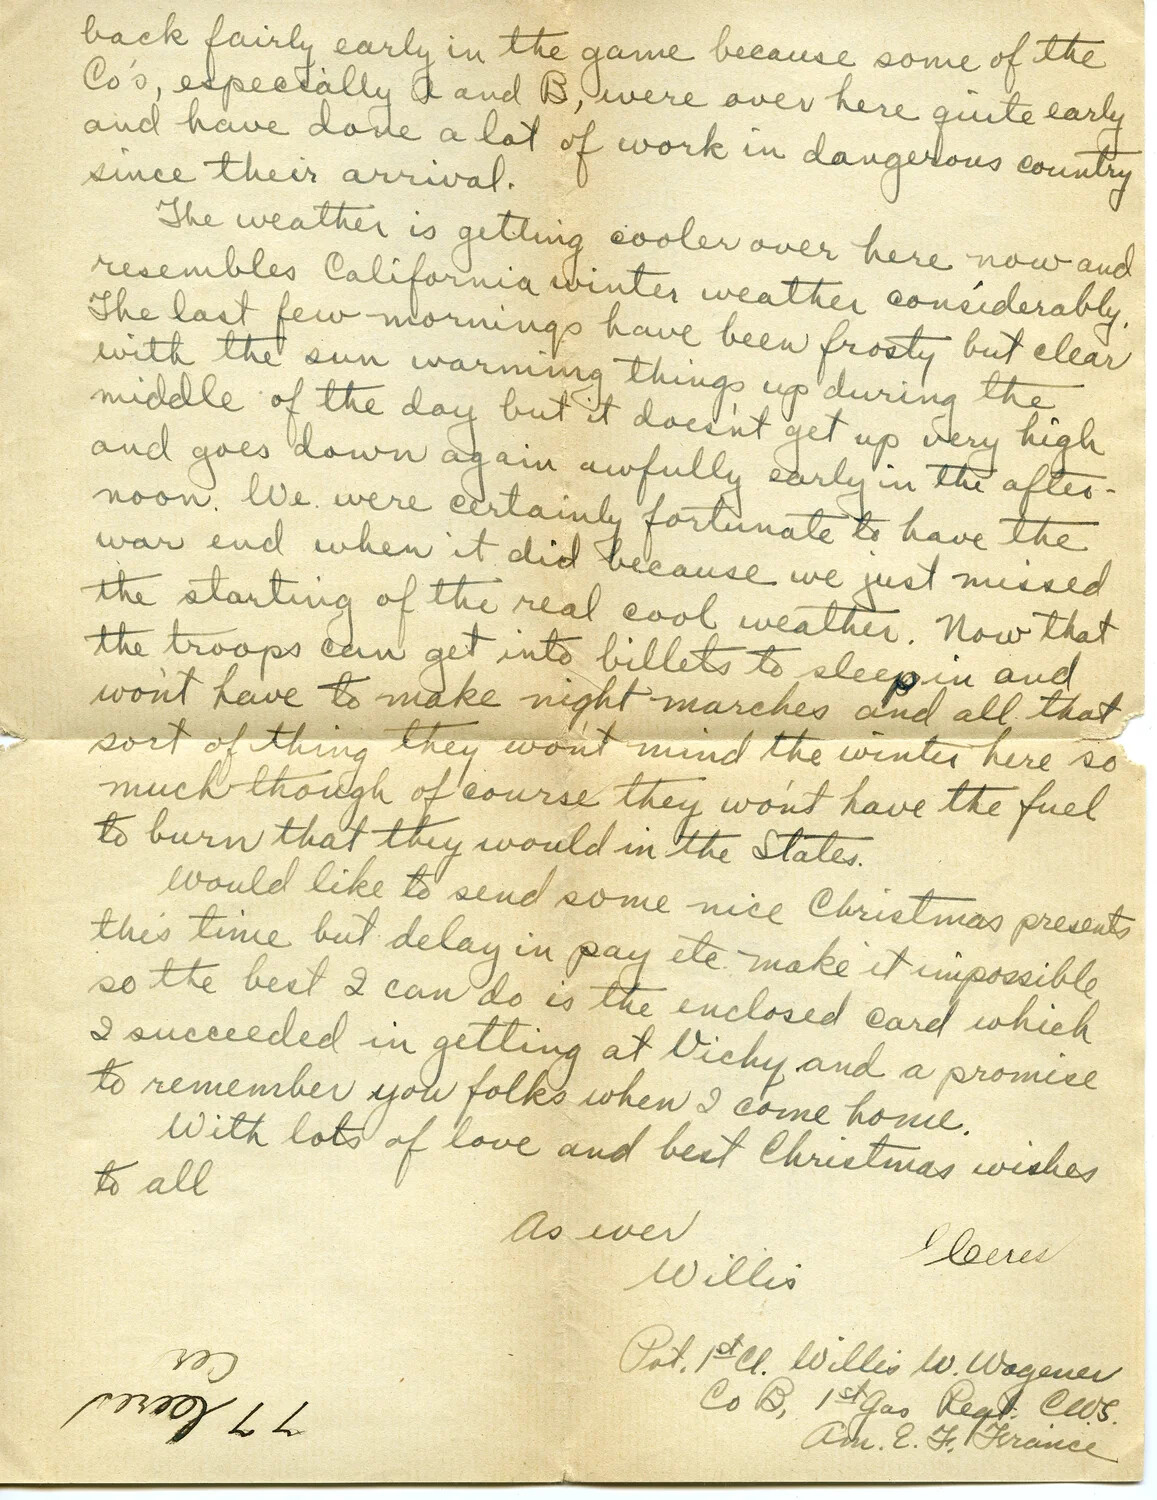 back fairly early in the game because some of the
Co's, especially A and B, were over here quite early
and have done a lot of work in dangerous country
since their arrival.
The weather is getting cooler over here now and
resembles California winter weather considerably.
The last few mornings have been frosty but clear
with the sun warming things up during the
middle of the day but it doesn't get up very high
and goes down again awfully early in the after-
noon. We were certainly fortunate to have the
war end when it did because we just missed
the starting of the real cool weather. Now that
the troops can get into billets to sleep in and
won't have to make night marches and all that
sort of thing they won't mind the winter here so
much though of course they won't have the fuel
to burn that they would in the States.
Would like to send some nice Christmas presents
this time but delay in pay etc. make it impossible
so the best I can do is the enclosed card which
I succeeded in getting at Vichy and a promise
to remember you folks when I come home.
With lots of love and best Christmas wishes
to all
As ever
Willis
Ceres
Pvt. 1st Cl. Willis W. Wagener
Co B, 1st Gas Regt. C.W.S.
Am. E. F. France
Cer
77 Ceres